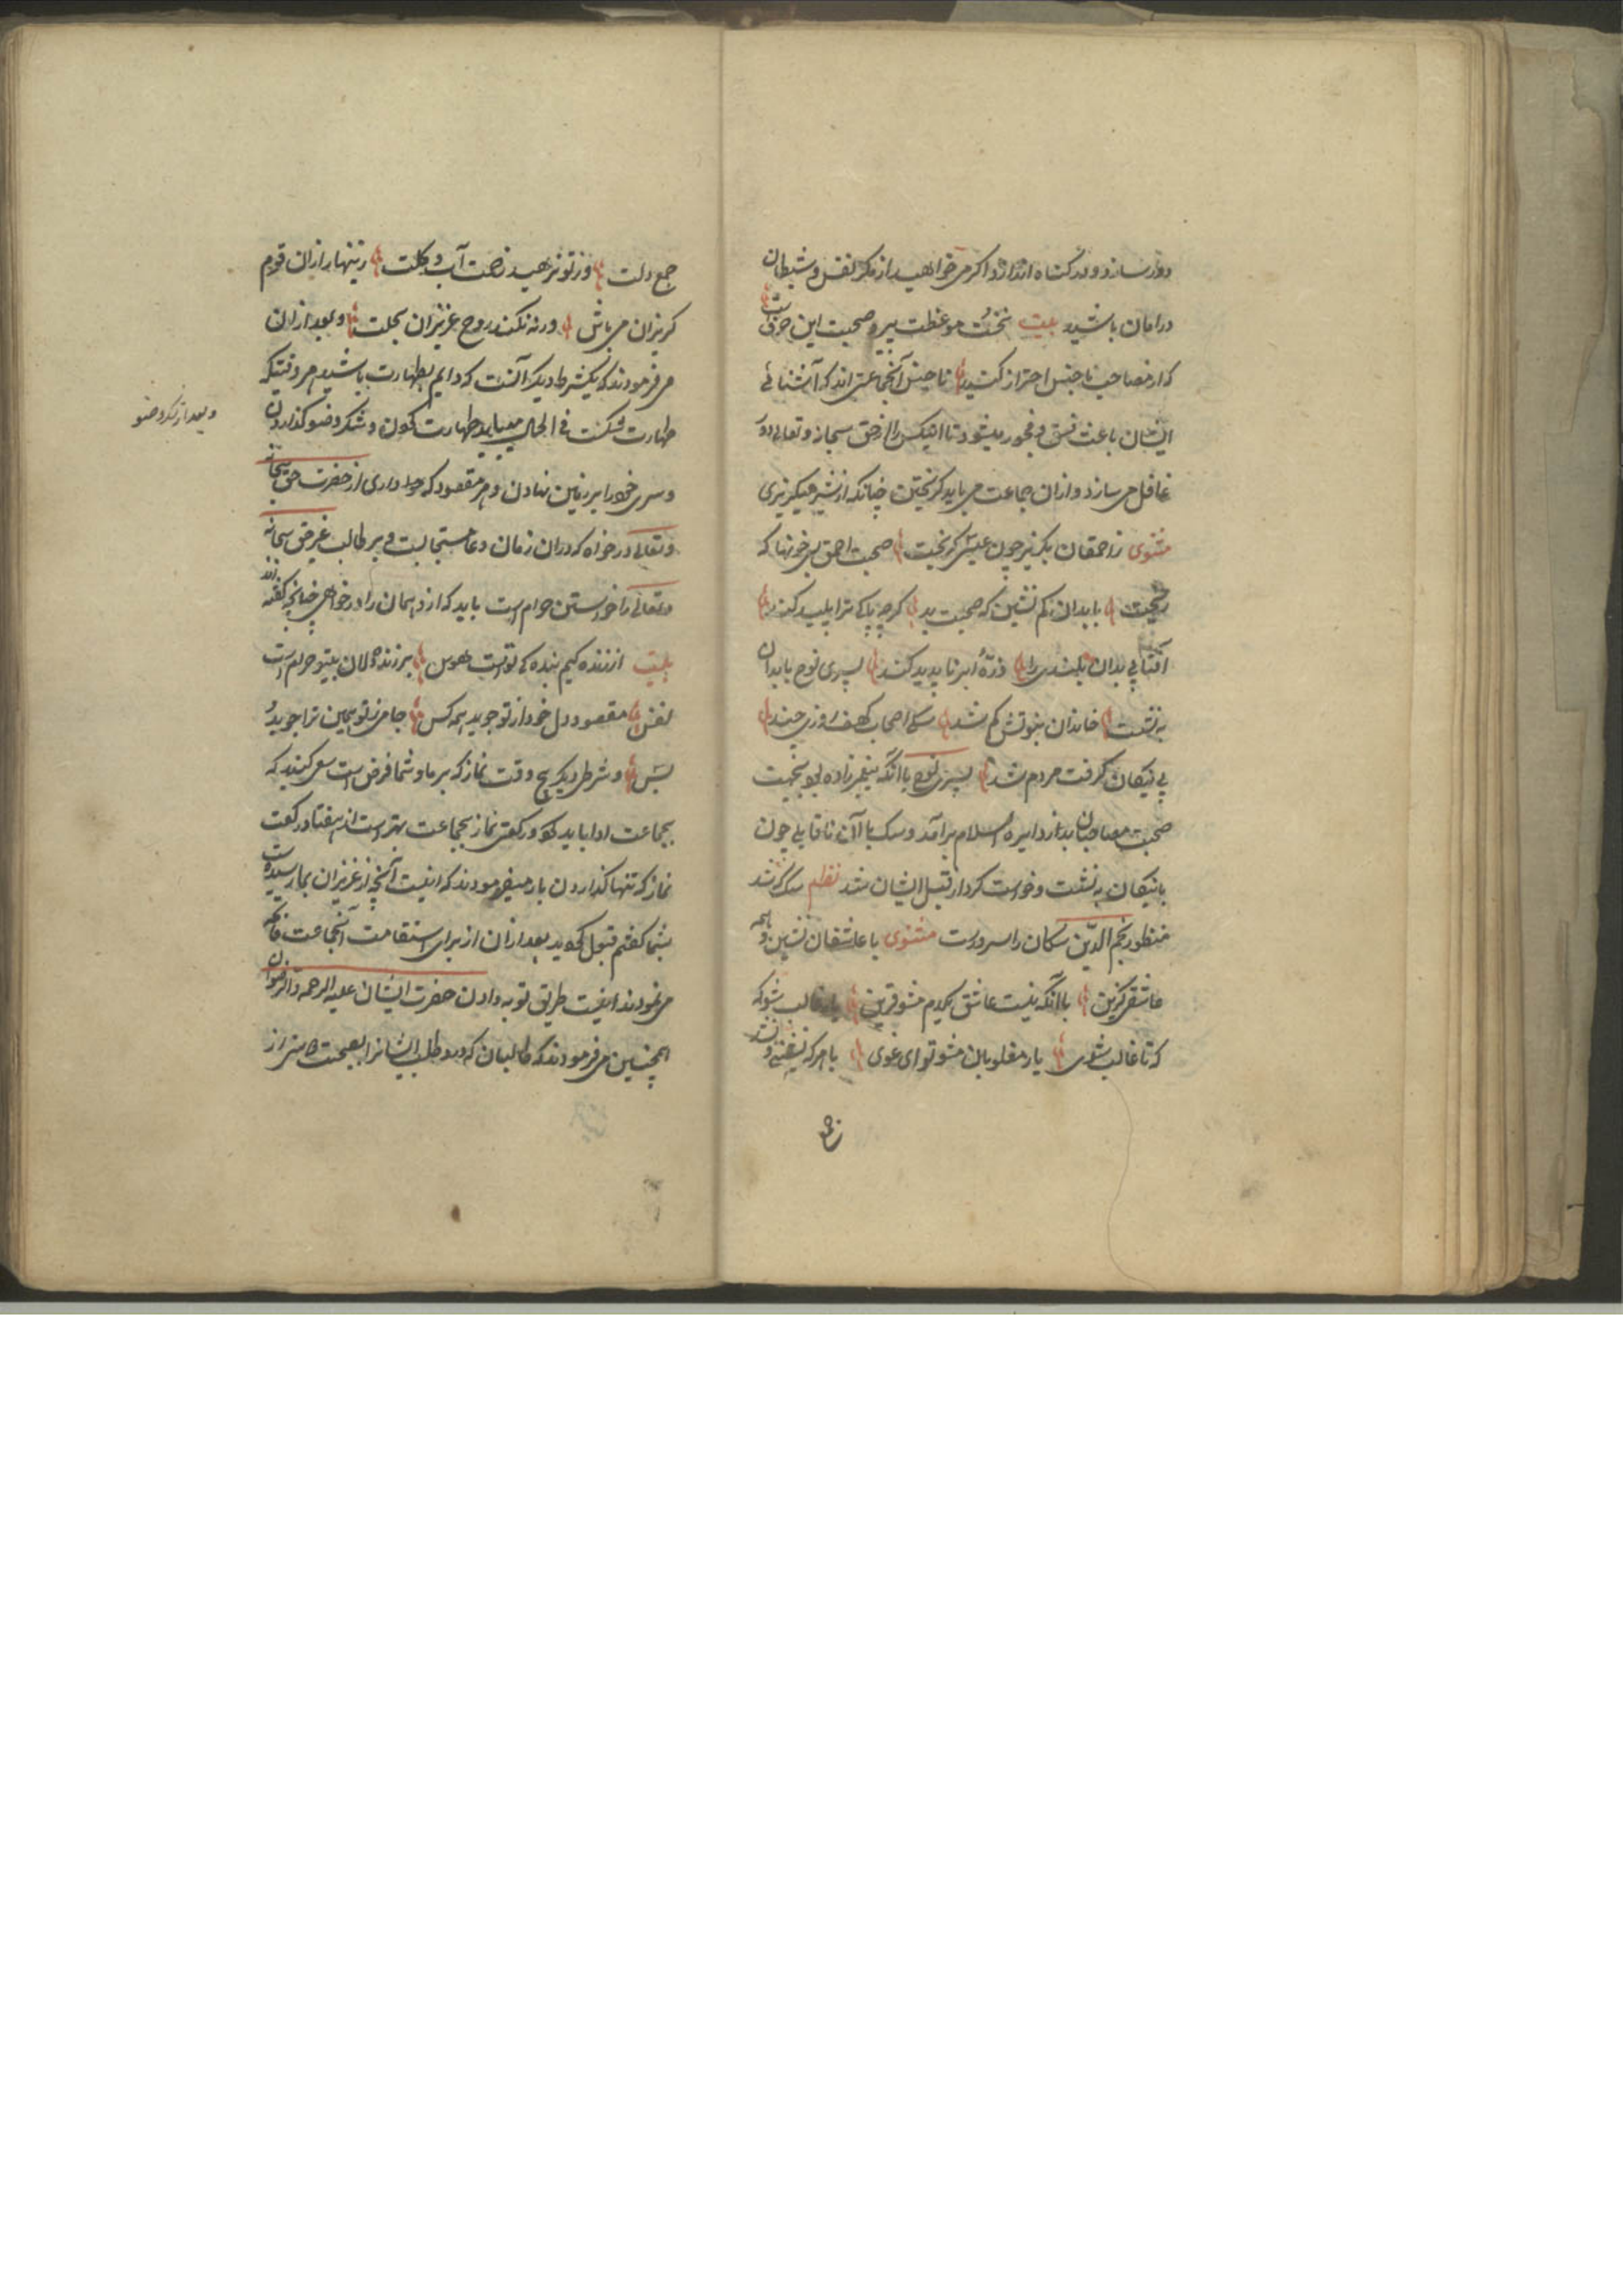 دور سازد و در گناه اندازد اگر می خواهید از مکر نفس و شیطان
در امان باشید بیت نخست موعظت پیر صحبت این حرف است
که از مصاحب ناجنس احتراز کنید ناجنس آنجماعتی اند که آشنائی
ایشان باعث فسق و فجور میشود تا آنکس را از حق سبحانه و تعالی دور
غافل می سازد و از ان جماعت می باید گریختن چنانکه از شیر میگریزی
مثنوی ز احمقان بگریز چون عیسی گریخت صحبت احمق بسی خونها که
ریخت با بدان کم نشین که صحبت بد گرچه پاکی ترا پلید کند
آفتابی بدان بلندی را ذرهٔ ابر ناپدید کند پسری نوح با بدان
به نشست خاندان نبوتش گم شد سگی اصحاب کهف روزی چند
پی نیکان گرفت مردم شد پسری نوح با آنکه پیغمبر زاده بود بجهت
صحبت مصاحبان بد از دایره اسلام برآمد و سگ با آن ناقابلی چون
با نیکان به نشست و خواست کرد از قبیل ایشان شد نظم سگ که شد
منظور نجم الدین سگان را سرورست مثنوی با عاشقان نشین و همه
عاشقی گزین با آنکه نیست عاشق یکدم مشو قرین یار غالب شو که
که تا غالب شوی یار مغلوبان مشو تو ای غوی با هر که نشستی و نشد
جمع دلت وز تو نرهید زحمت آب و گلت زینهار از ان قوم
گریزان می باش ورنه نکند روح عزیزان بحلت و بعد از ان
می فرمودند که یکشرط دیگر آنست که دایم بطهارت باشید هر وقتیکه
طهارت شکست فی الحال میباید طهارت کردن و شکر وضو گذاردن
و بعد از شکر وضو
و سری خود را بر زمین نهادن و هر مقصود که داری از حضرت حق سبحانه
و تعالی در خواه که دران زمان دعا مستجابست و بر طالب غیر حق سبحانه
و تعالی را خواستن حرام است باید که ازو همان را در خواهی چنانچه گفته اند
بیت از زنده کیم بنده کی تواست هوس بر زنده دلان بیتو حرام است
نفس مقصود دل خود از تو جوید همه کس جامی ز تو همین ترا جوید
بس و شرطی دیگر پنج وقت نماز که بر ما و شما فرض است سعی کنید که
بجماعت ادا باید کرد و رکعتی نماز بجماعت بهتر است از هفتاد رکعت
نماز که تنها گذاردن باز میفرمودند که اینست آنچه از عزیزان بما رسیده است
بشما گفتم قبول کردید بعد از ان از برای استقامت آنجماعت فاتحه
می نمودند اینست طریق توبه دادن حضرت ایشان علیه الرحمه و الرضوان
همچنین می فرمودند که طالبان که درد طلب ایشانرا بصحبت